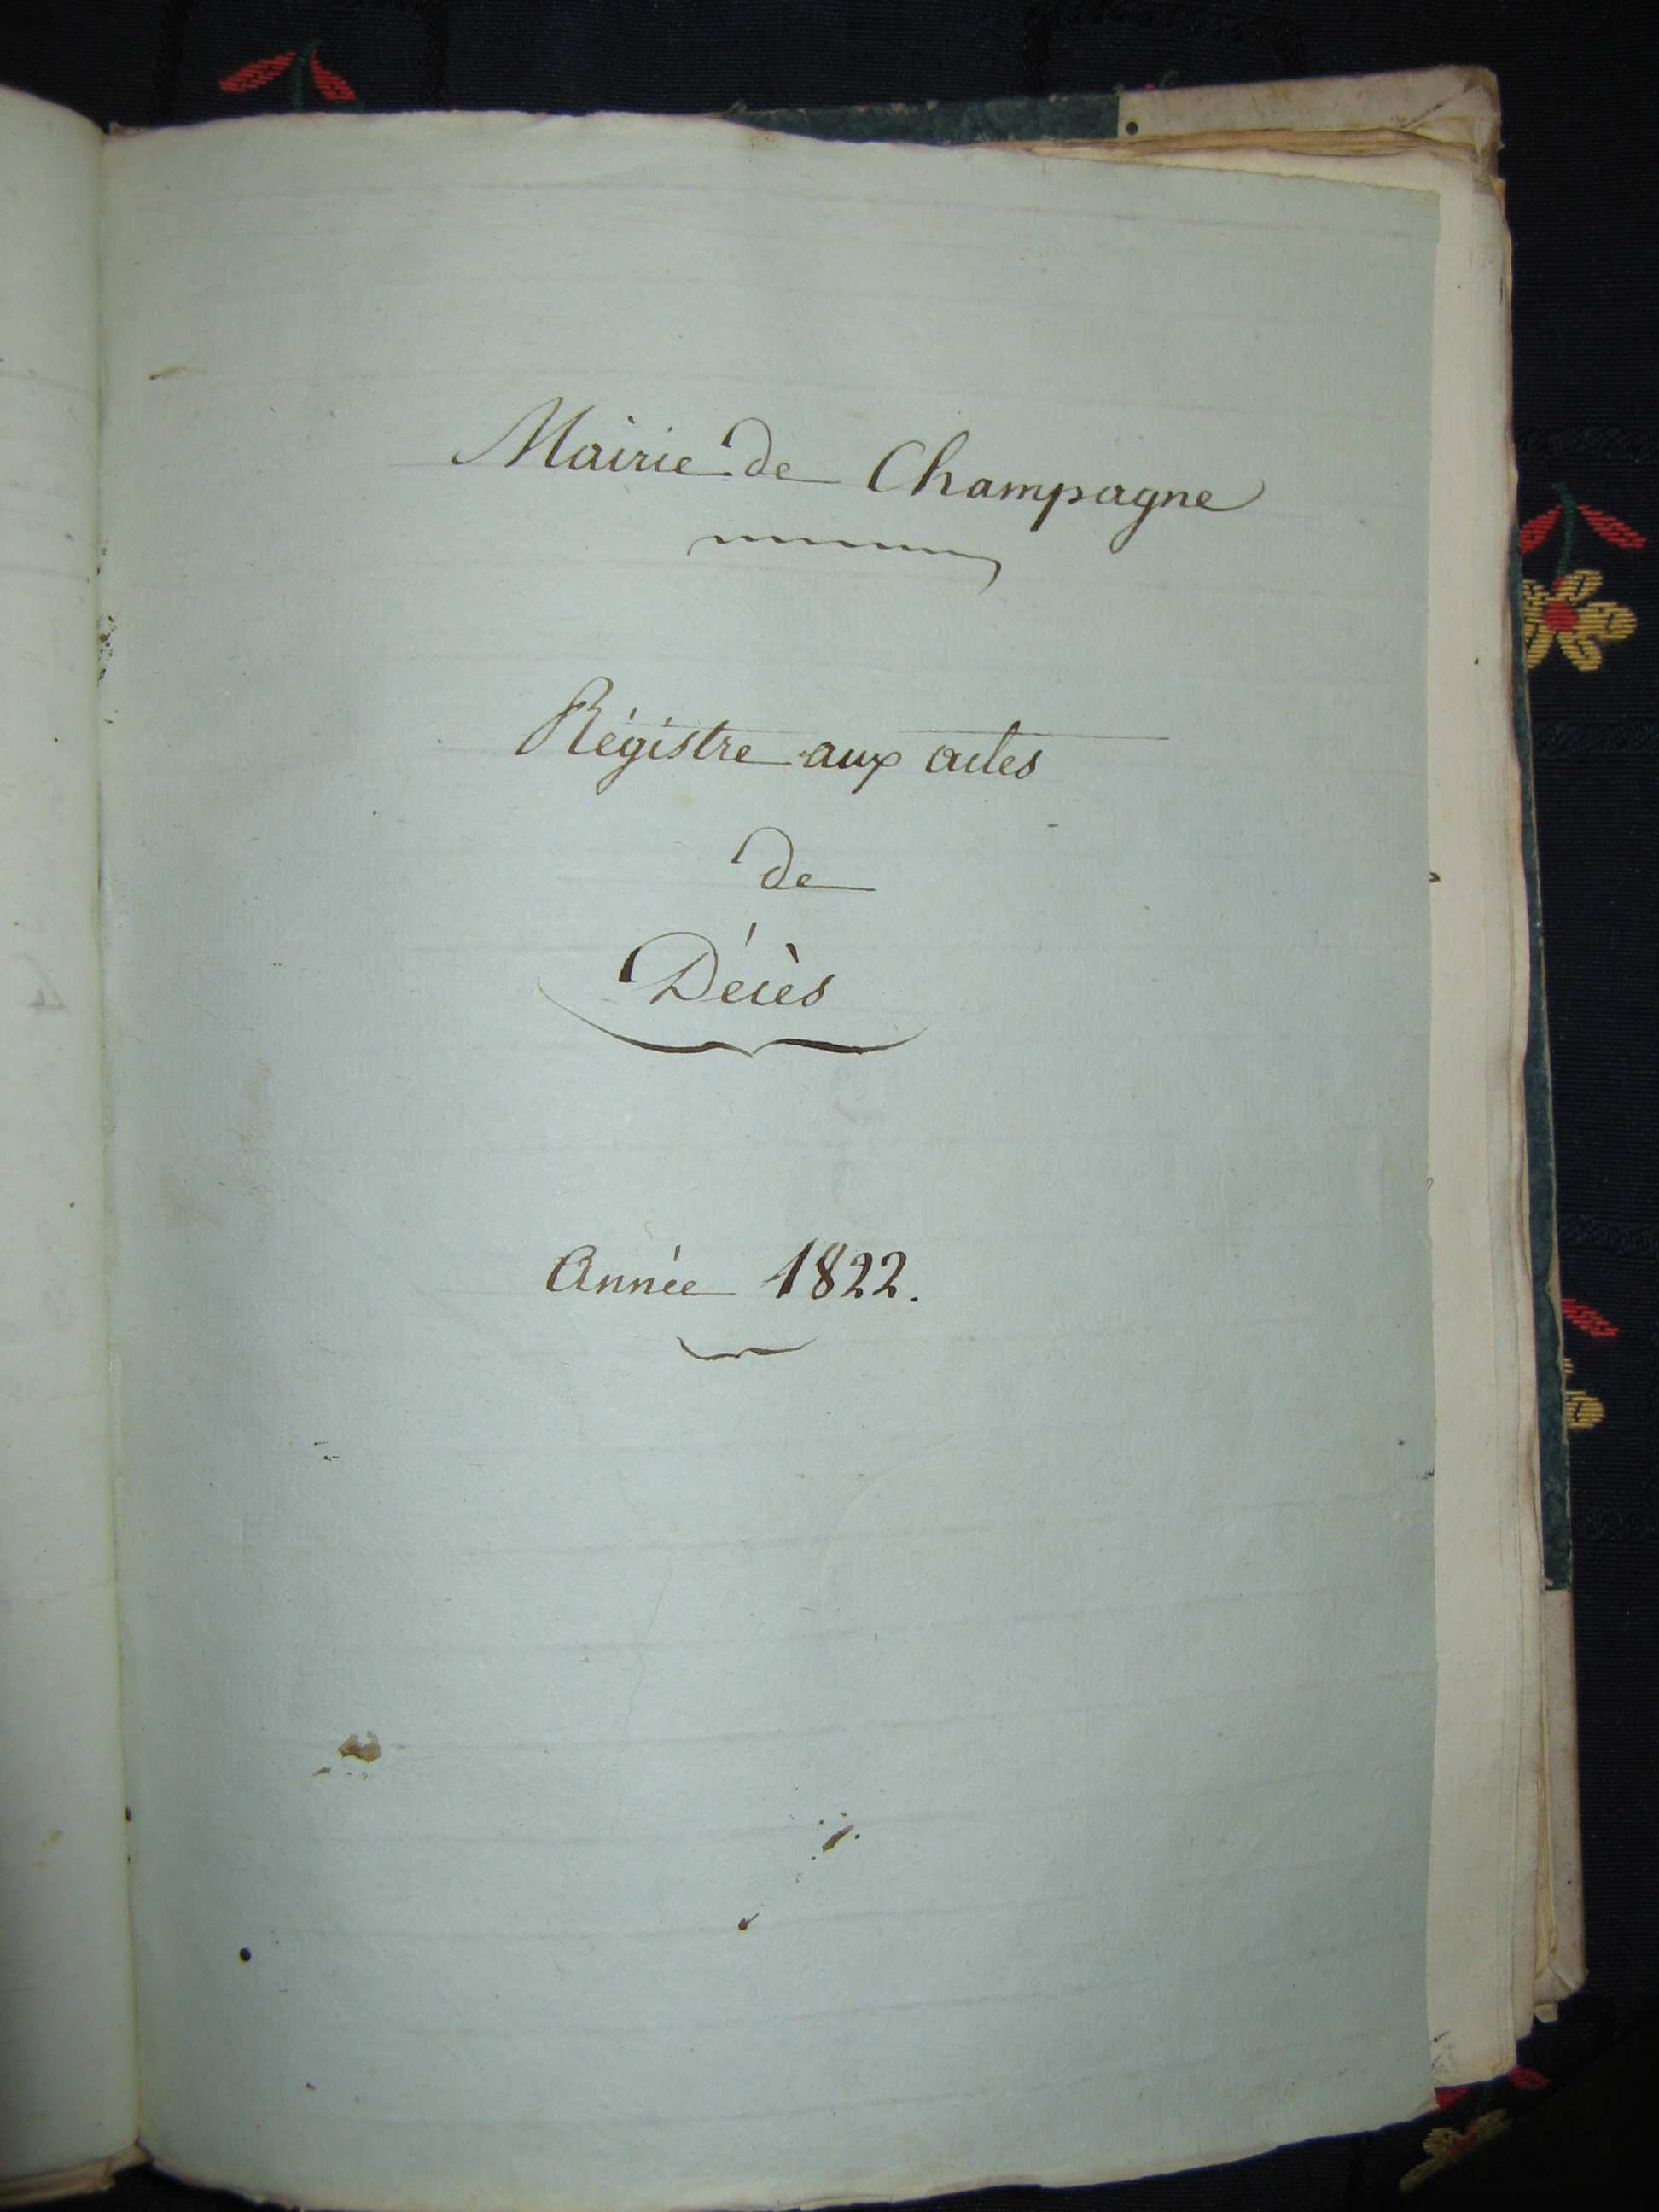 Mairie de Champagne
Régistre aux actes
de
Décès
Année 1822.